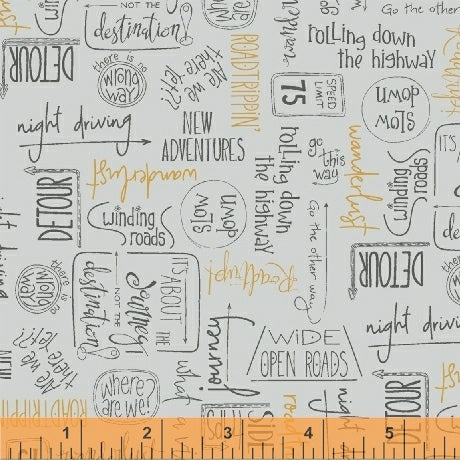 NOT THE
destination!
where are we!
ROADTRIPPIN'
wanderlust
Roadtrip!
Go the other
rolling down
the highway
DETOUR
there is no
wrong
way
Are we
there yet?!
SPEED
LIMIT
75
SLOW
DOWN
night driving
NEW
ADVENTURES
rolling down
the highway
go
this
way
wanderlust
winding
roads
IT'S
DETOUR
wanderlust
winding
roads
SLOW
DOWN
Go the other way
DETOUR
there is no
wrong
way
IT'S ABOUT THE
Journey
NOT THE
destination!
Roadtrip!
night driving
night driving
Are we
there yet?!
journey
WIDE
OPEN ROADS
NEW
ROADTRIPPIN'
where
are we!
what
a
SIDE
road
night
DETOUR
Roadtrip!
1 2 3 4 5